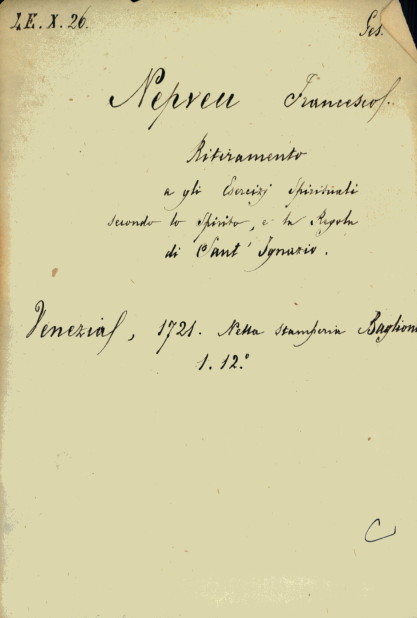 LE. X. 26.
Ges.
Nepveu Francesco.
Ritiramento
a gli Esercizj Spirituali
secondo lo Spirito, e la Regola
di Sant' Ignazio.
Venezia, 1721. Nella stamperia Baglioni
1. 12.°
C